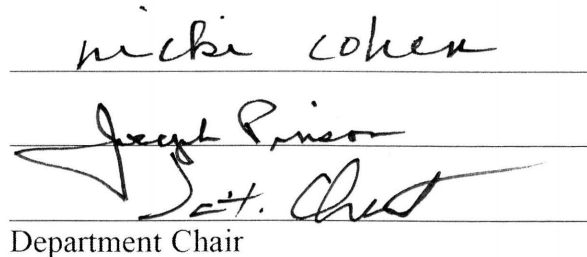 nicki cohen
Joseph Pinson
Department Chair